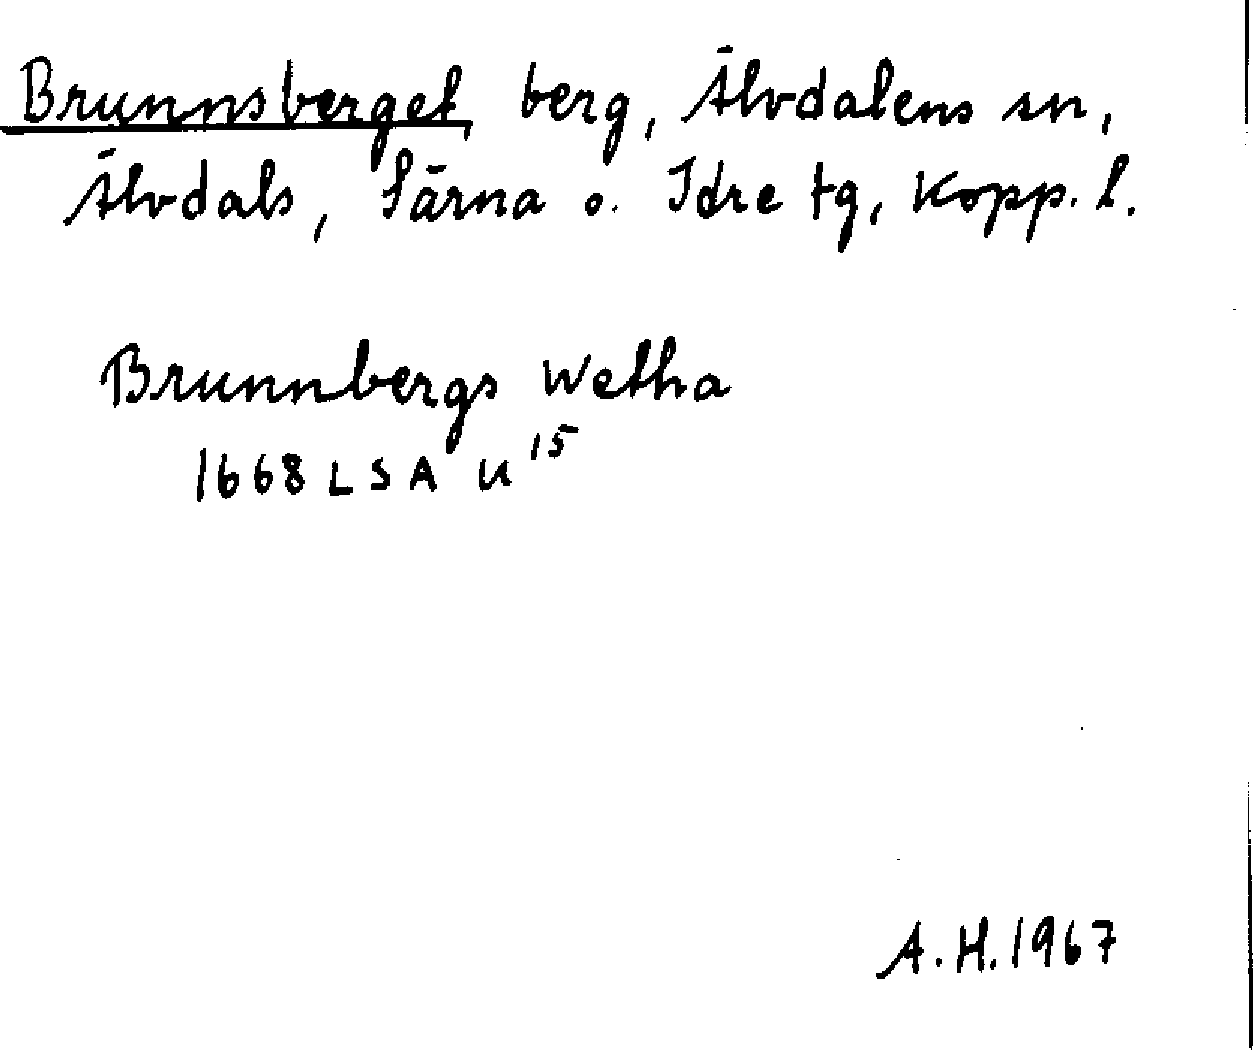 Brunnsberget, berg, Älvdalens sn,
Älvdals, Särna o. Idre tg, Kopp. l.
Brunnbergs Wetha
1668 LSA U 15
A.H. 1967